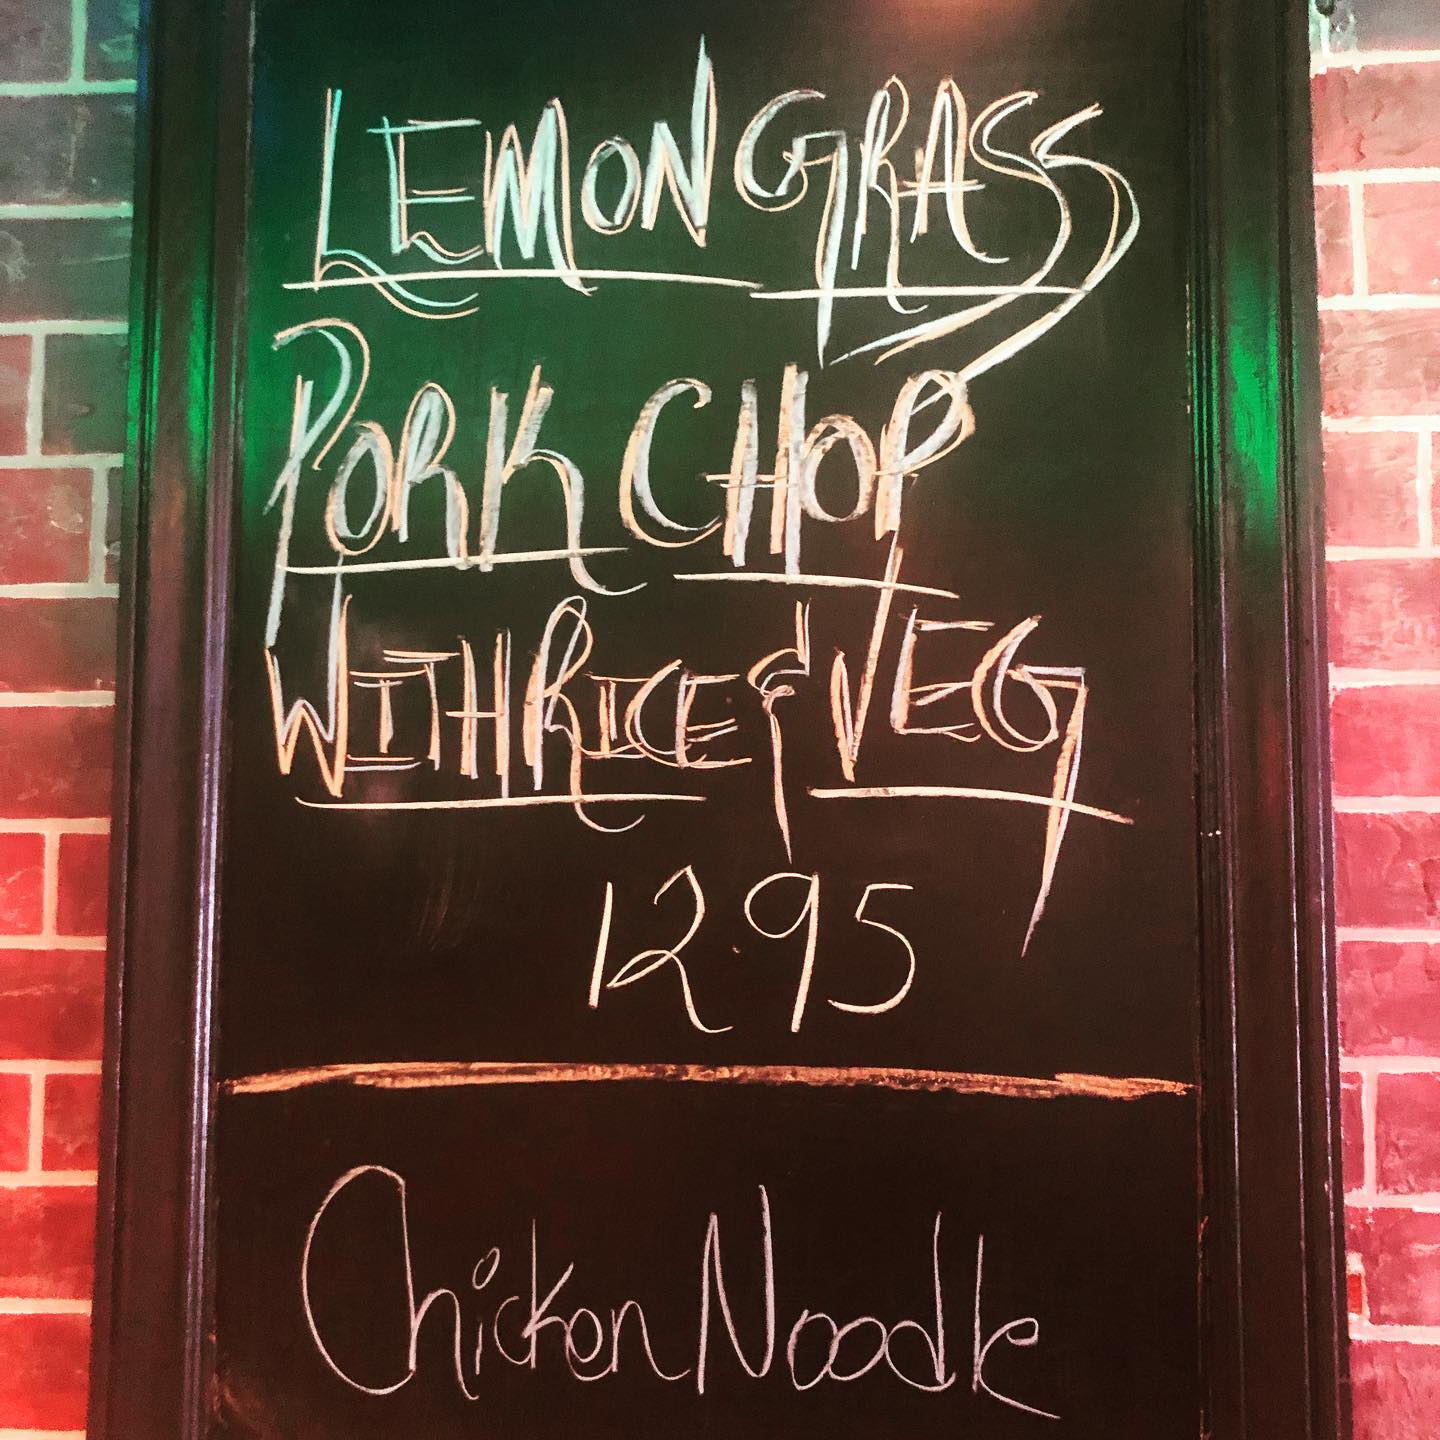 LEMON GRASS
PORK CHOP
WITH RICE & VEG
12.95
Chicken Noodle